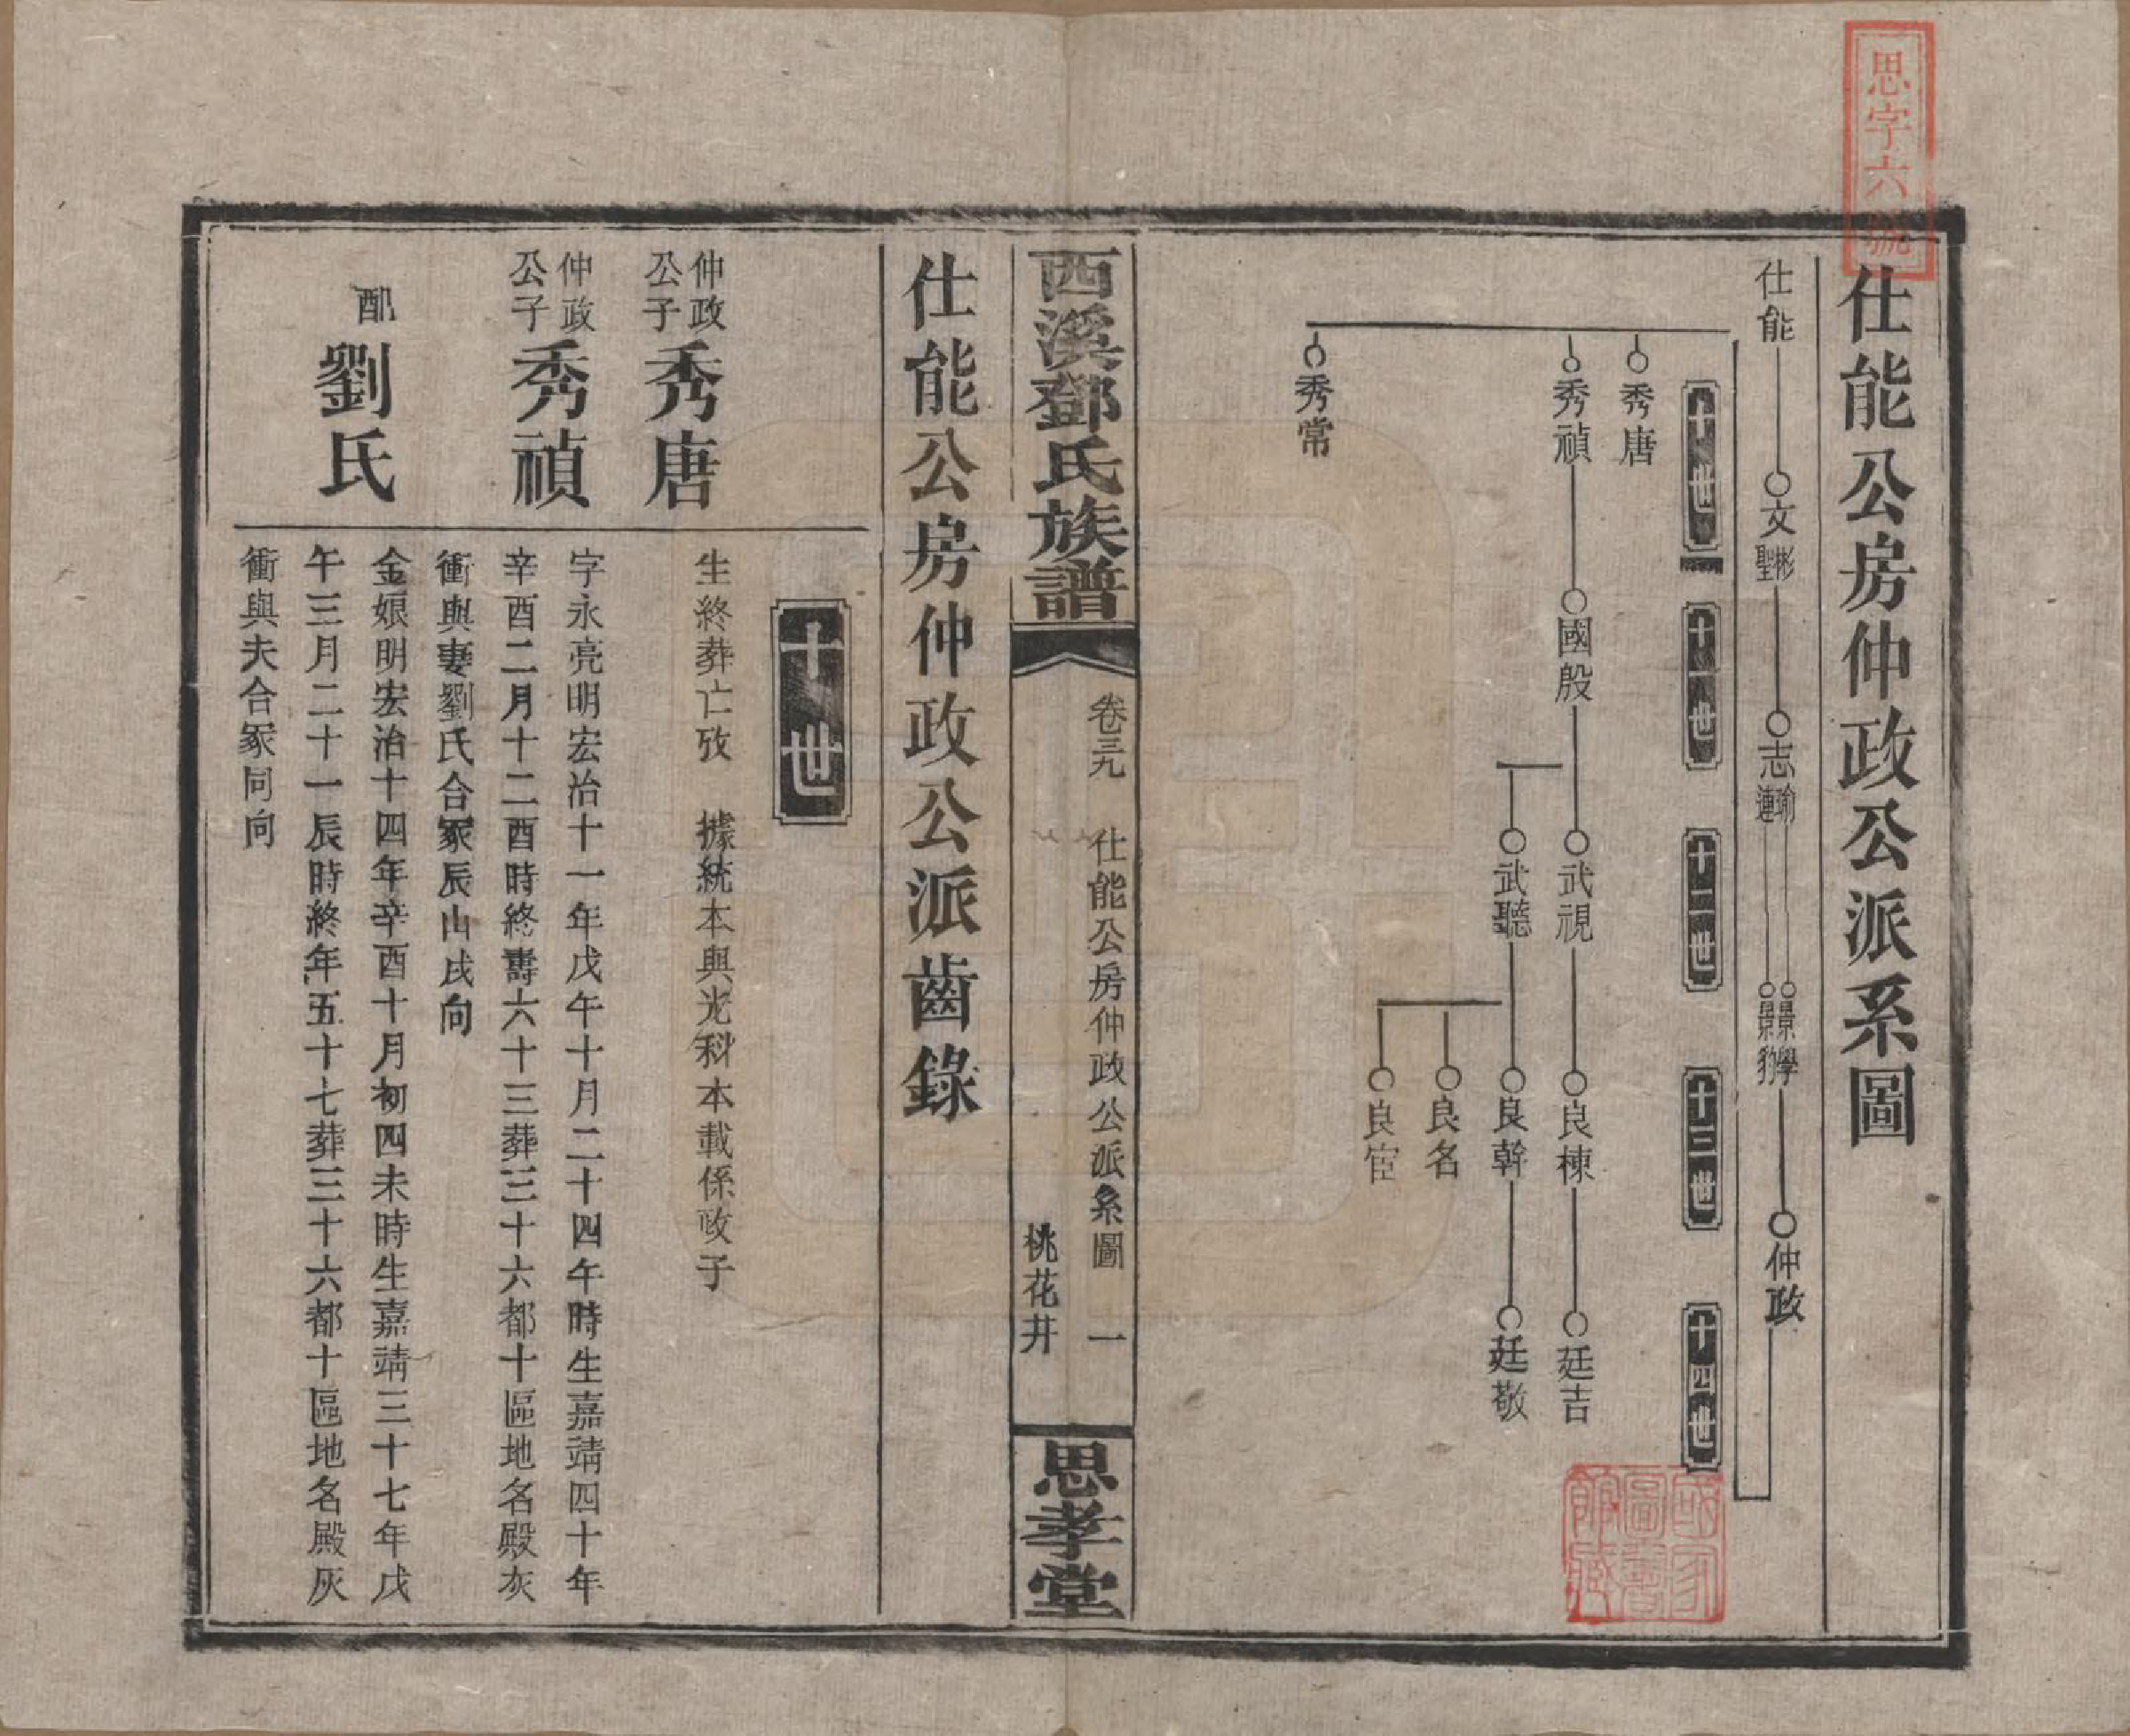 思字六號
仕能公房仲政公派系圖
仕能
文彬
聖
志瑜
璉
景學
景豹
仲政
十世
十一世
十二世
十三世
十四世
秀唐
秀禎
國殷
武視
良棟
廷吉
武聽
良幹
廷敬
良名
良宦
秀常
國家圖書館藏
西溪鄧氏族譜
卷三九
仕能公房仲政公派系圖
一
桃花井
思孝堂
仕能公房仲政公派齒錄
十世
仲政公子
秀唐
生終葬亡攷 據統本與光科本載係政子
仲政公子
秀禎
字永亮明宏治十一年戊午十月二十四午時生嘉靖四十年
辛酉二月十二酉時終壽六十三葬三十六都十區地名殿灰
衝與妻劉氏合冢辰山戌向
配
劉氏
金娘明宏治十四年辛酉十月初四未時生嘉靖三十七年戊
午三月二十一辰時終年五十七葬三十六都十區地名殿灰
衝與夫合冢同向